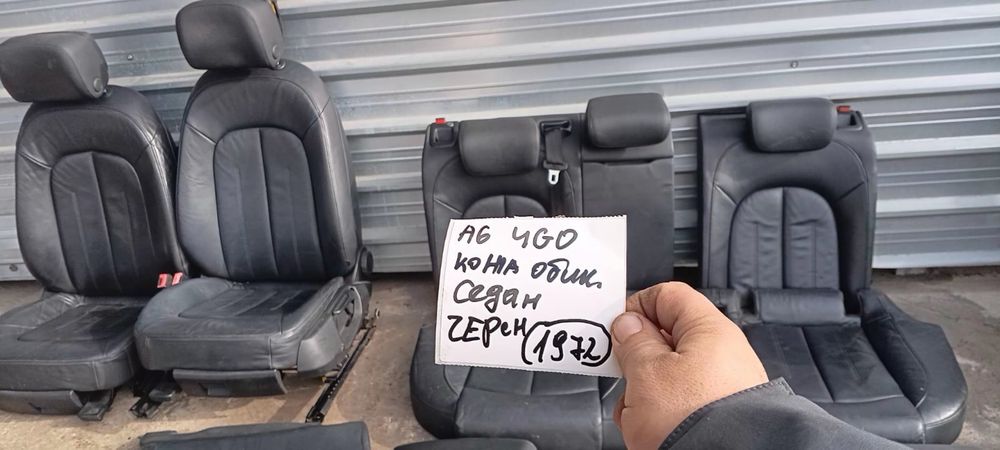 A6 4G0
кожа обик.
Седан
ЧЕРЕН (1972)